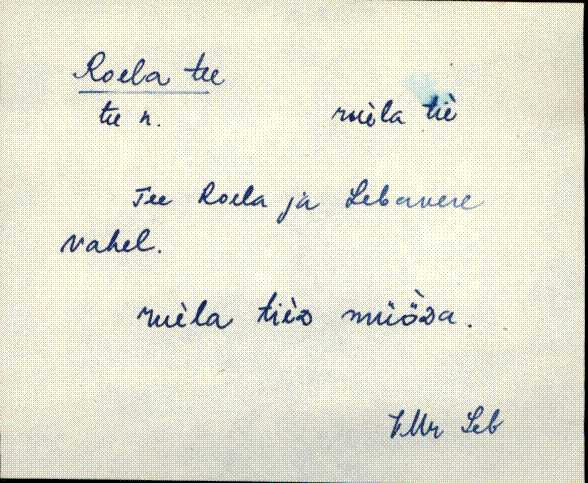 Roela tee
tee n. ruèla tiè
Tee Roela ja Lebavere
vahel.
ruèla tiès müö̀sa.
VMr Leb